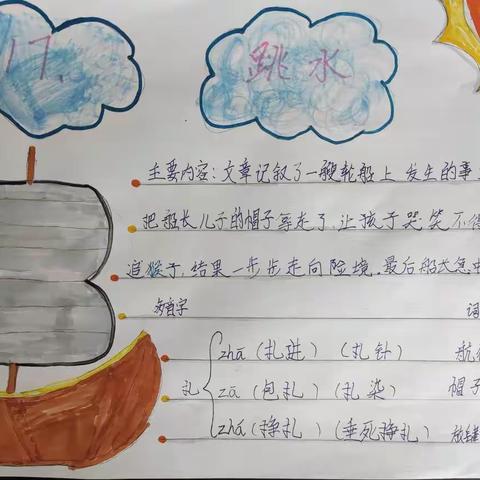 17、
跳水
主要内容:文章记叙了一艘轮船上发生的事
把船长儿子的帽子夺走了,让孩子哭笑不得
追猴子,结果一步步走向险境.最后船长急中
多音字 词
扎 zhā(扎进)(扎针) 航
zā(包扎)(扎染) 帽子
zhá(挣扎)(垂死挣扎) 放